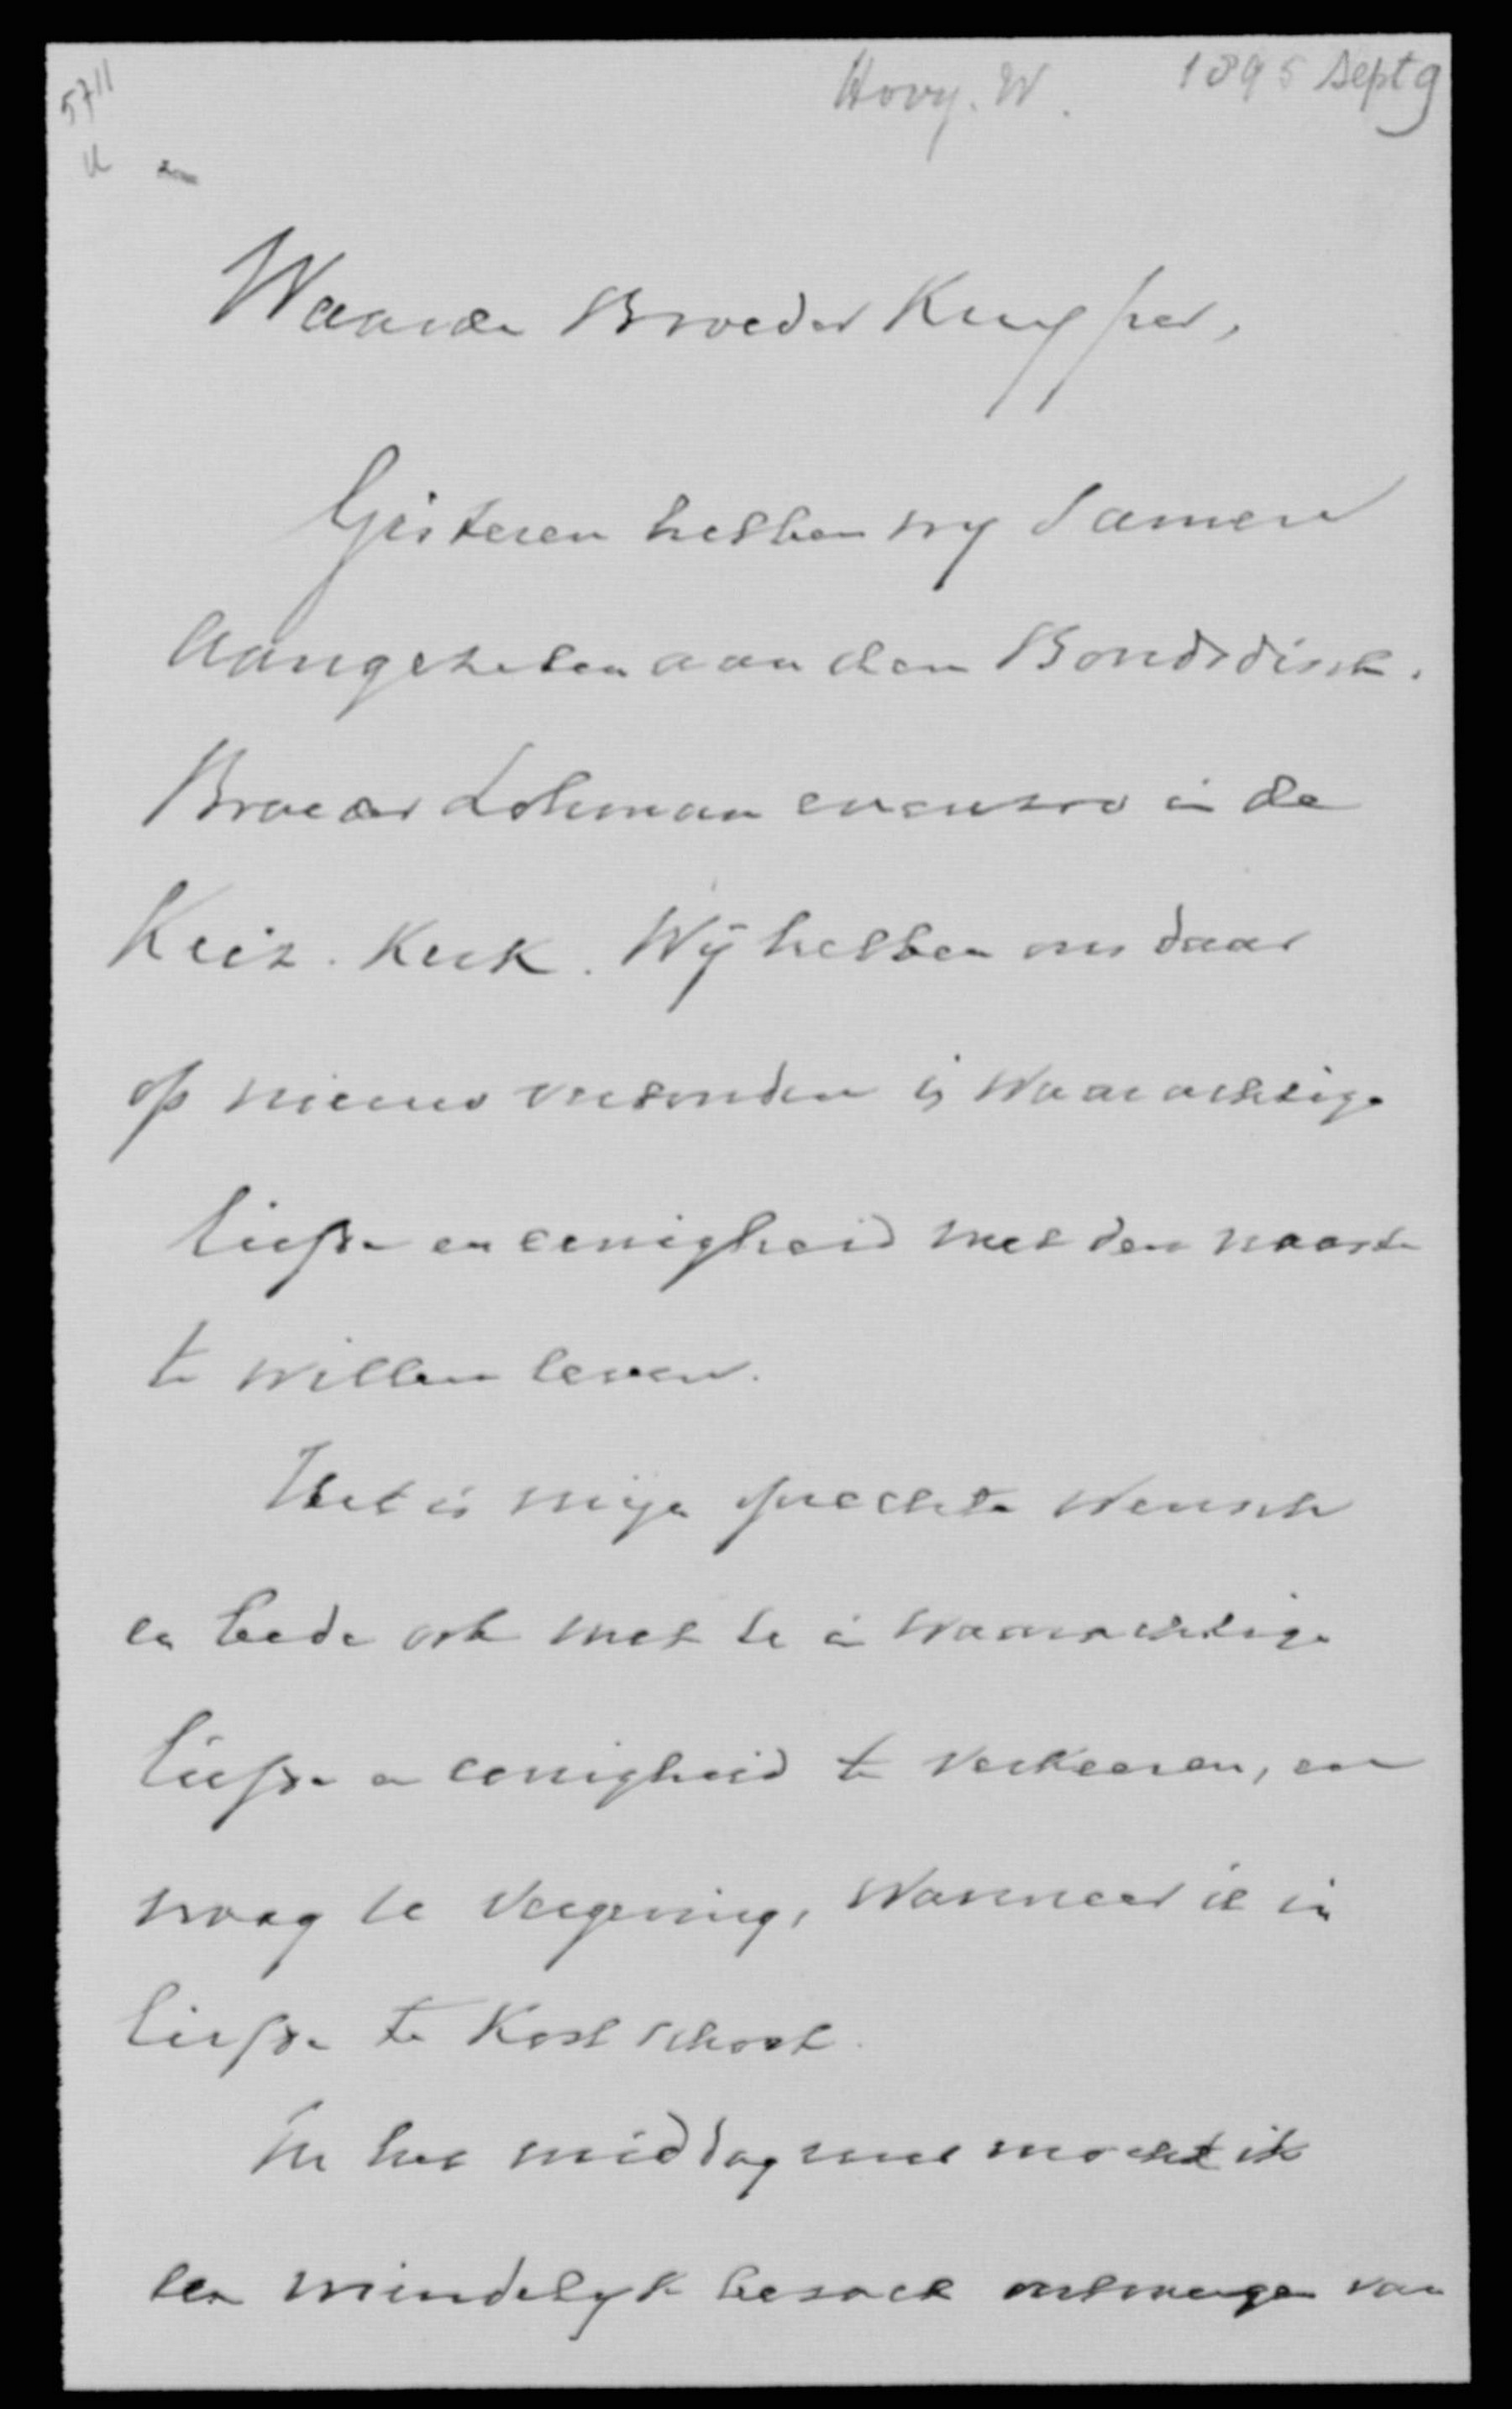 5711
Hovy. W. 1895 Sept 9
Waarde Broeder Kuyper,
Gisteren hebben wy samen
aangezeten aan den Bondsdisch.
Broeder Lohman evenzoo in de
Keiz. Kerk. Wij hebben ons daar
op nieuw verbonden in waarachtige
liefde en eenigheid met den naaste
te willen leven.
Het is mijn oprechte wensch
en bede ook met U in waarachtige
liefde en eenigheid te verkeeren, en
vraag U vergeving, wanneer ik in
liefde te kort schoot.
In het middaguur mocht ik
een vriendelyk bezoek ontvangen van